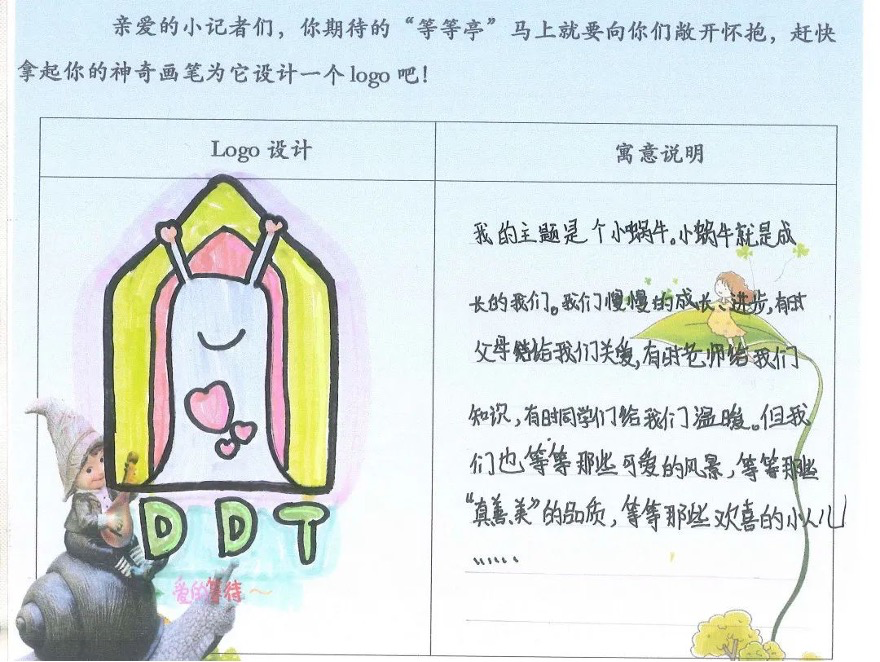 亲爱的小记者们，你期待的“等等亭”马上就要向你们敞开怀抱，赶快
拿起你的神奇画笔为它设计一个logo吧！
Logo 设计
寓意说明
我的主题是个小蜗牛。小蜗牛就是成
长的我们。我们慢慢的成长、进步，有时
父母给我们关爱，有时老师给我们
知识，有时同学们给我们温暖。但我
们也等等那些可爱的风景，等等那些
“真善美”的品质，等等那些欢喜的小人儿
......
DDT
爱的等待~